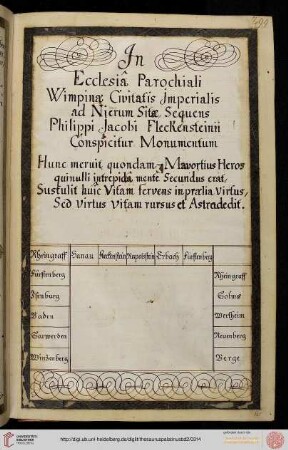 In
Ecclesiâ Parochiali
Wimpinæ Civitatis Imperialis
ad Nicrum Sitæ Sequens
Philippi Jacobi Fleckensteinii
Conspicitur Monumentum
Hunc meruit quondam Mavortius Heros
qui nulli intrepida mente Secundus erat
Sustulit huic Vitam fervens in prælia virtus,
Sed virtus vitam rursus et Astra dedit.
Rheingraff Hanau Fleckenstein Rapoltstein Erbach Fürstenberg
Fürstenberg Rheingraff
Isenburg Solms
Baden Wertheim
Sarwerden Neumberg
Windenberg Berge
http://digi.ub.uni-heidelberg.de/diglit/thesauruspalatinusbd2/0314